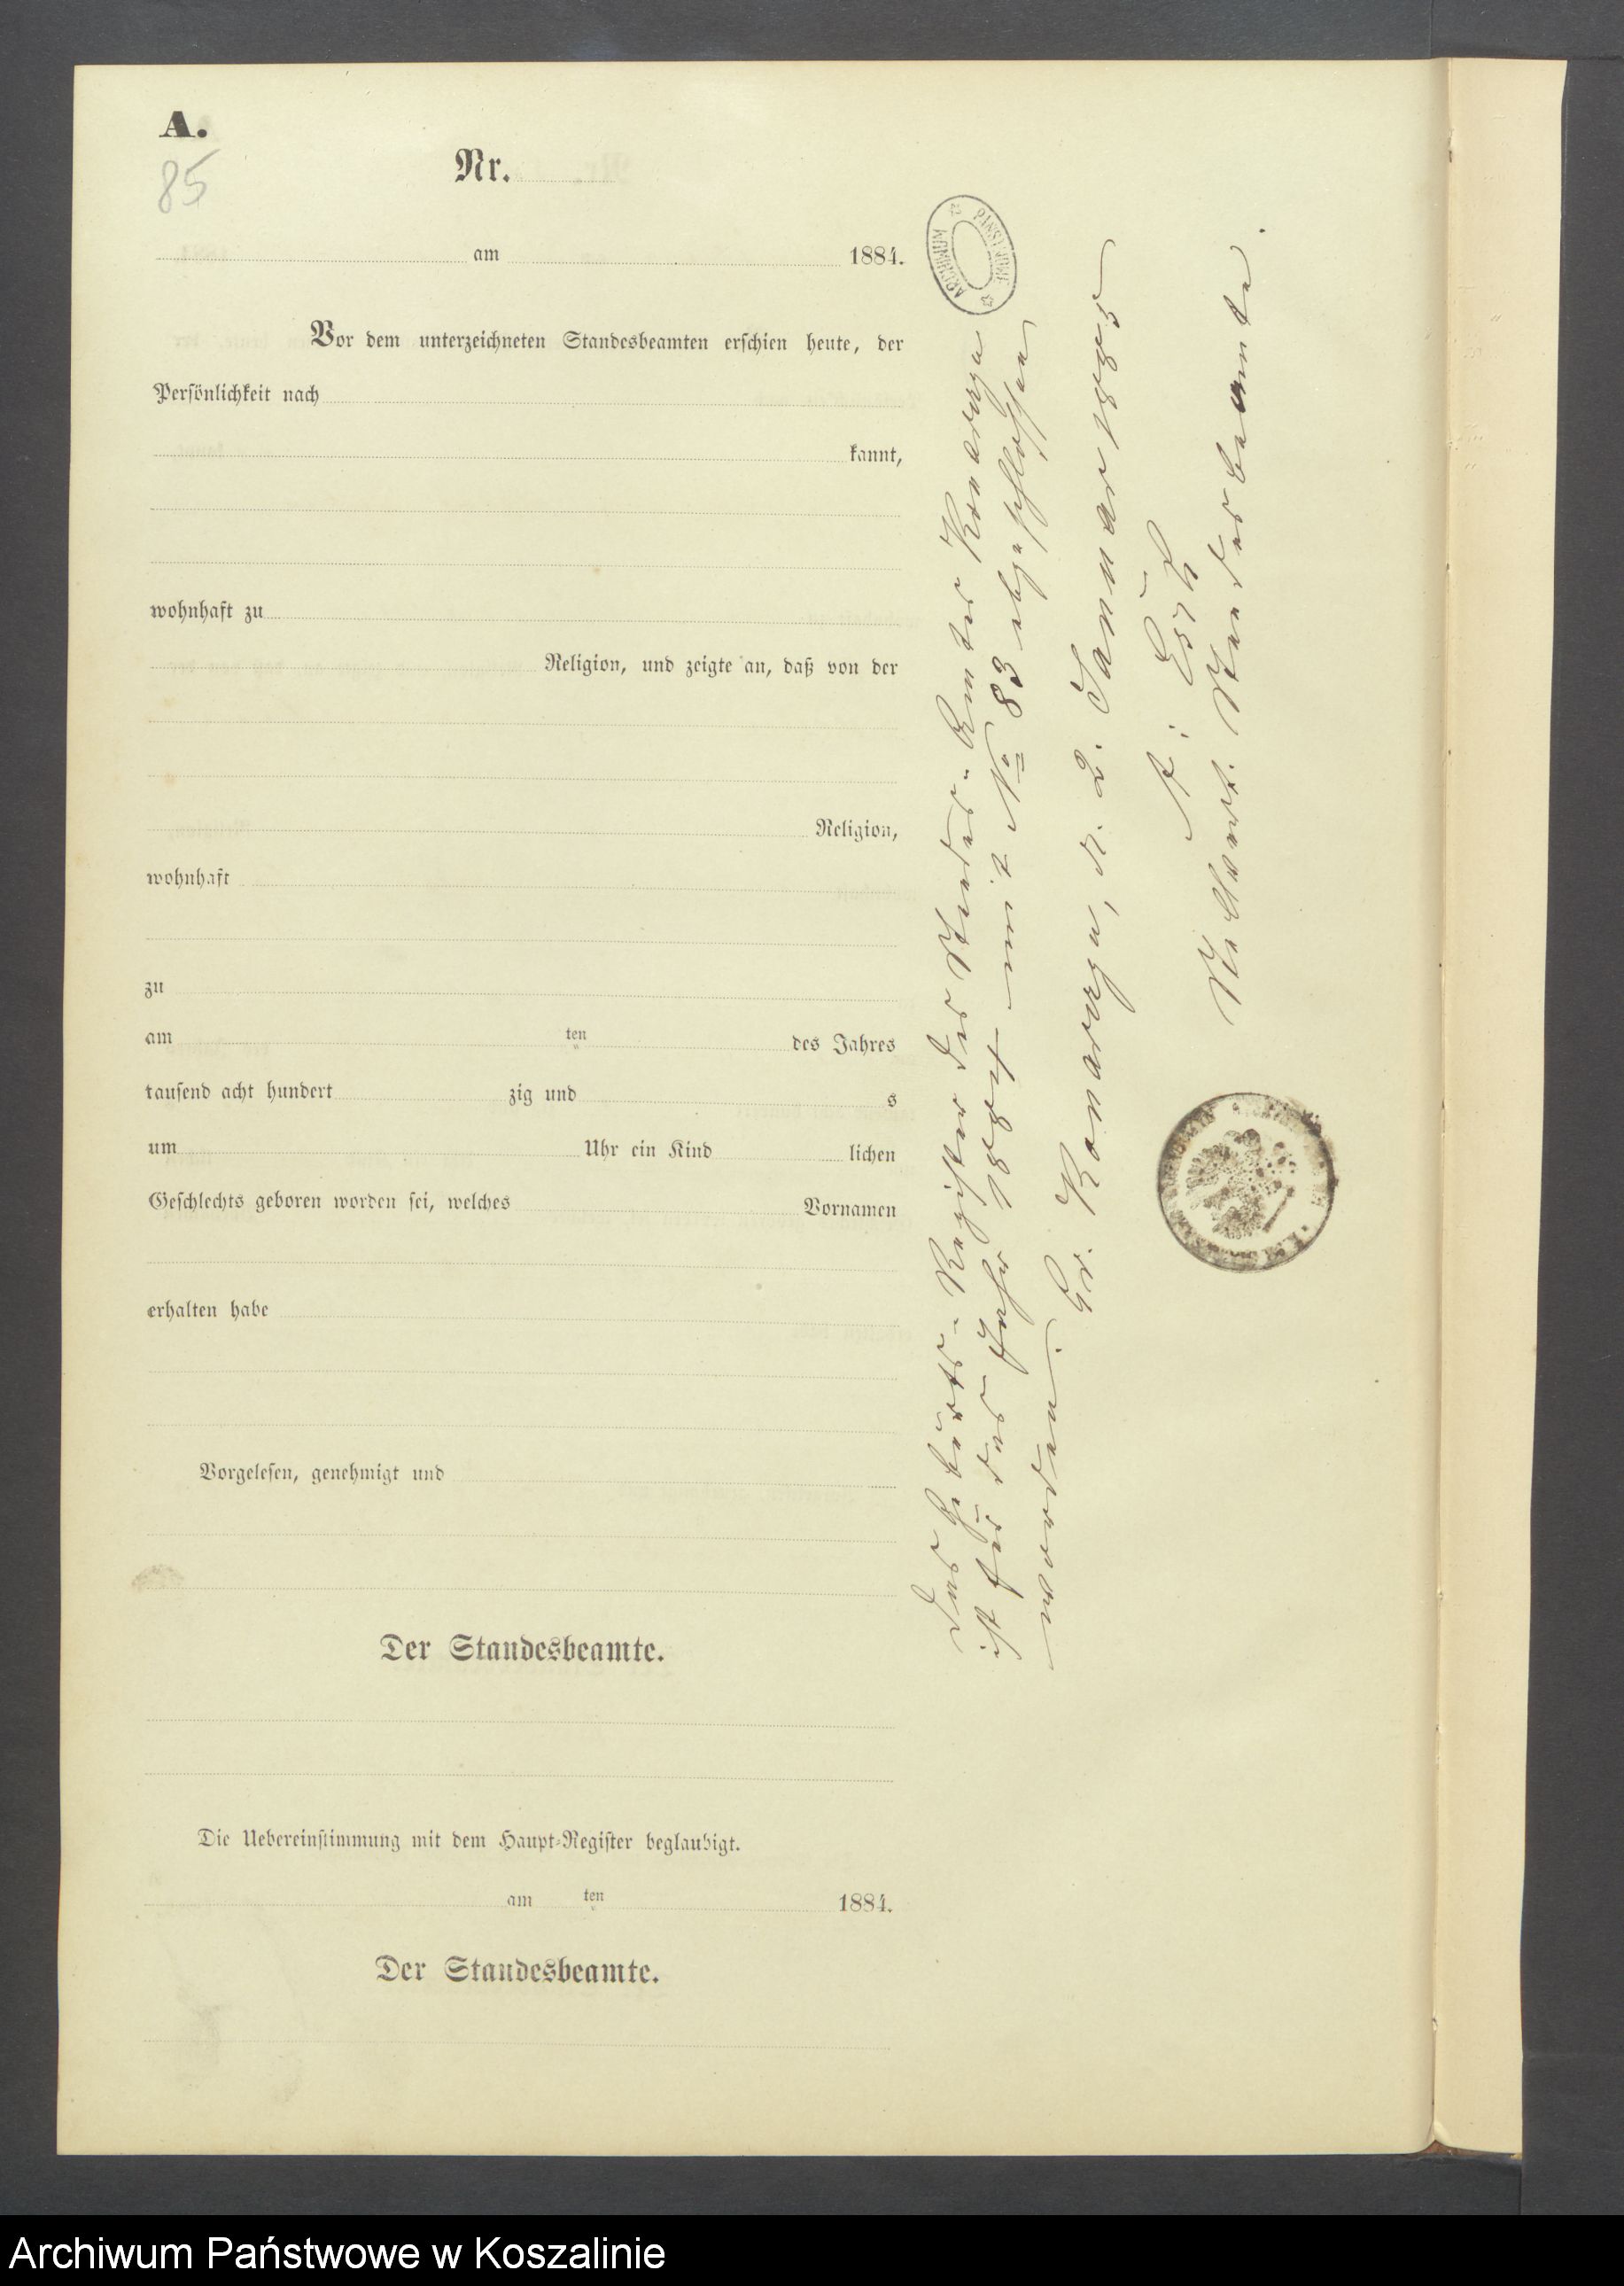 A.
85
Nr.
am 1884.
Vor dem unterzeichneten Standesbeamten erschien heute, der
Persönlichkeit nach
kannt,
wohnhaft zu
Religion, und zeigte an, daß von der
Religion,
wohnhaft
zu
am ten des Jahres
tausend acht hundert zig und s
um Uhr ein Kind lichen
Geschlechts geboren worden sei, welches Vornamen
erhalten habe
Vorgelesen, genehmigt und
Der Standesbeamte.
Die Uebereinstimmung mit dem Haupt-Register beglaubigt.
am ten 1884.
Der Standesbeamte.
ARCHIWUM PAŃSTWOWE
Das Geburts-Register des Standes-Amtes
ist für das Jahr 1884 mit No 83 abgeschlossen
worden.
Gr. d. 2. Januar 1885
Der Standesbeamte.
Archiwum Państwowe w Koszalinie